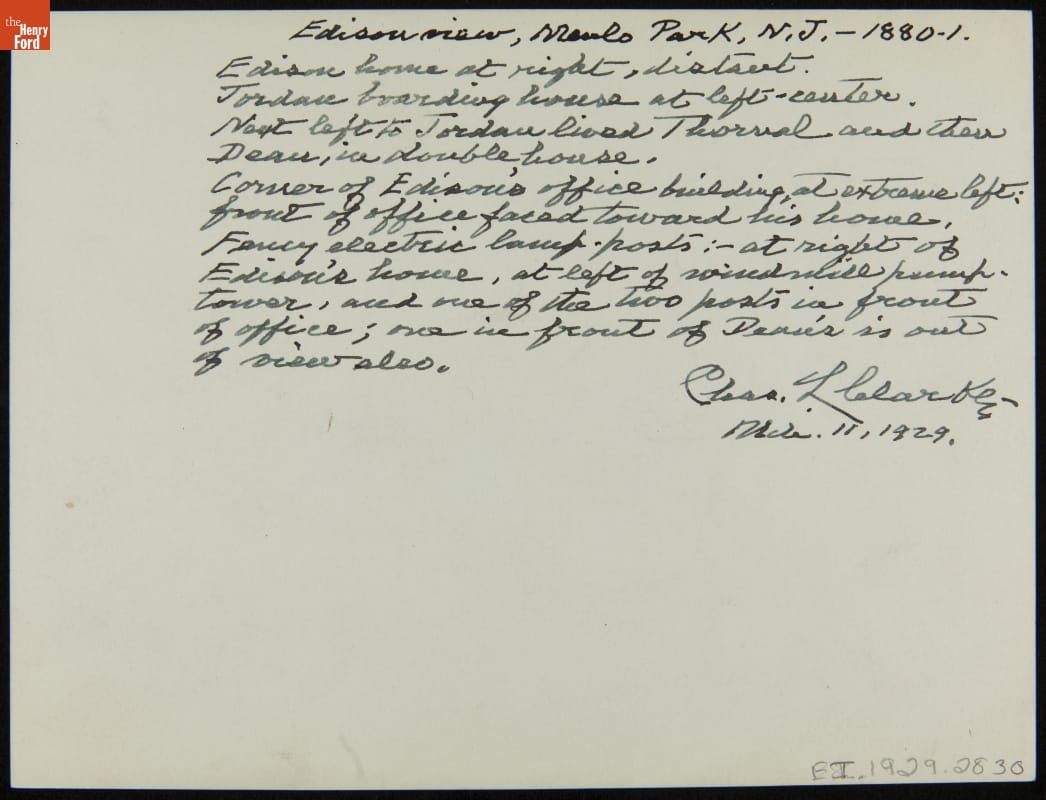 the
Henry
Ford
Edison view, Menlo Park, N.J. - 1880-1.
Edison home at right, distant.
Jordan boarding house at left-center.
Next left to Jordan lived Thornal and then
Dean, in double house.
Corner of Edison's office building, at extreme left;
front of office faced toward his home.
Fancy electric lamp-posts:- at right of
Edison's home, at left of windmill pump-
tower, and one of the two posts in front
of office; one in front of Dean's is out
of view also.
Chas. L Clarke -
11, 1929.
EI.1929.2830